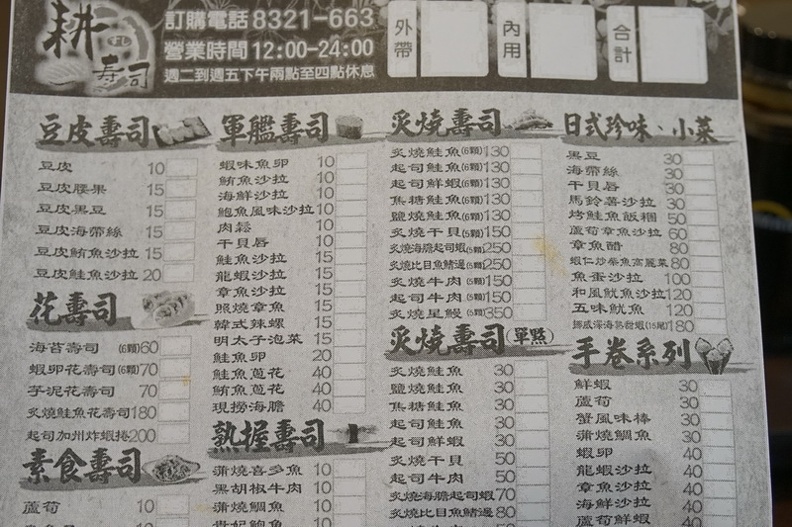 耕壽司
訂購電話8321-663
營業時間12:00-24:00
週二到週五下午兩點至四點休息
外帶
內用
合計
豆皮壽司
豆皮 10
豆皮腰果 15
豆皮黑豆 15
豆皮海帶絲 15
豆皮鮪魚沙拉 15
豆皮鮭魚沙拉 20
花壽司
海苔壽司 (6顆)60
蝦卵花壽司(6顆)70
芋泥花壽司 70
炙燒鮭魚花壽司180
起司加州炸蝦捲200
素食壽司
蘆筍 10
軍艦壽司
蝦味魚卵 10
鮪魚沙拉 10
海鮮沙拉 10
鮑魚風味沙拉10
肉鬆 10
干貝唇 10
鮭魚沙拉 15
龍蝦沙拉 15
章魚沙拉 15
照燒章魚 15
韓式辣螺 15
明太子泡菜 15
鮭魚卵 20
鮭魚蔥花 40
鮪魚蔥花 40
現撈海膽 40
熟握壽司
蒲燒喜多魚 10
黑胡椒牛肉 10
蒲燒鯛魚 10
貴妃鮑魚 10
炙燒壽司
炙燒鮭魚(6顆)130
起司鮭魚(6顆)130
起司鮮蝦(6顆)130
焦糖鮭魚(6顆)130
鹽燒鮭魚(6顆)130
炙燒干貝(5顆)150
炙燒海膽起司蝦(5顆)250
炙燒比目魚鰭邊(5顆)250
炙燒牛肉(5顆)150
起司牛肉(5顆)150
炙燒星鰻(5顆)350
炙燒壽司(單點)
炙燒鮭魚 30
鹽燒鮭魚 30
焦糖鮭魚 30
起司鮭魚 30
起司鮮蝦 30
炙燒干貝 50
炙燒牛肉 50
起司牛肉 50
炙燒海膽起司蝦70
炙燒比目魚鰭邊80
日式珍味、小菜
黑豆 30
海帶絲 30
干貝唇 30
馬鈴薯沙拉 30
烤鮭魚飯糰 50
蘆筍章魚沙拉 60
章魚醋 80
蝦仁炒柴魚高麗菜 80
魚蛋沙拉 100
和風魷魚沙拉120
五味魷魚 120
挪威深海熟甜蝦(15尾)180
手卷系列
鮮蝦 30
蘆筍 30
蟹風味棒 30
蒲燒鯛魚 30
蝦卵 40
龍蝦沙拉 40
章魚沙拉 40
海鮮沙拉 40
蘆筍鮮蝦 40